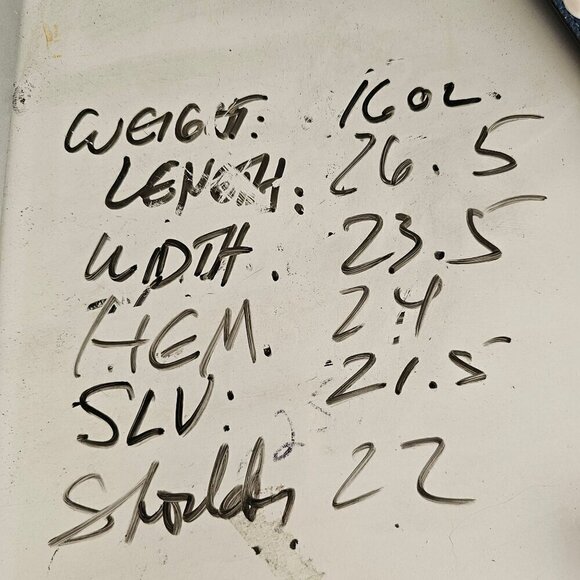 WEIGHT: 16 OZ.
LENGTH: 26.5
WDTH. 23.5
HEM. 24
SLV: 21.5
Shoulder 22